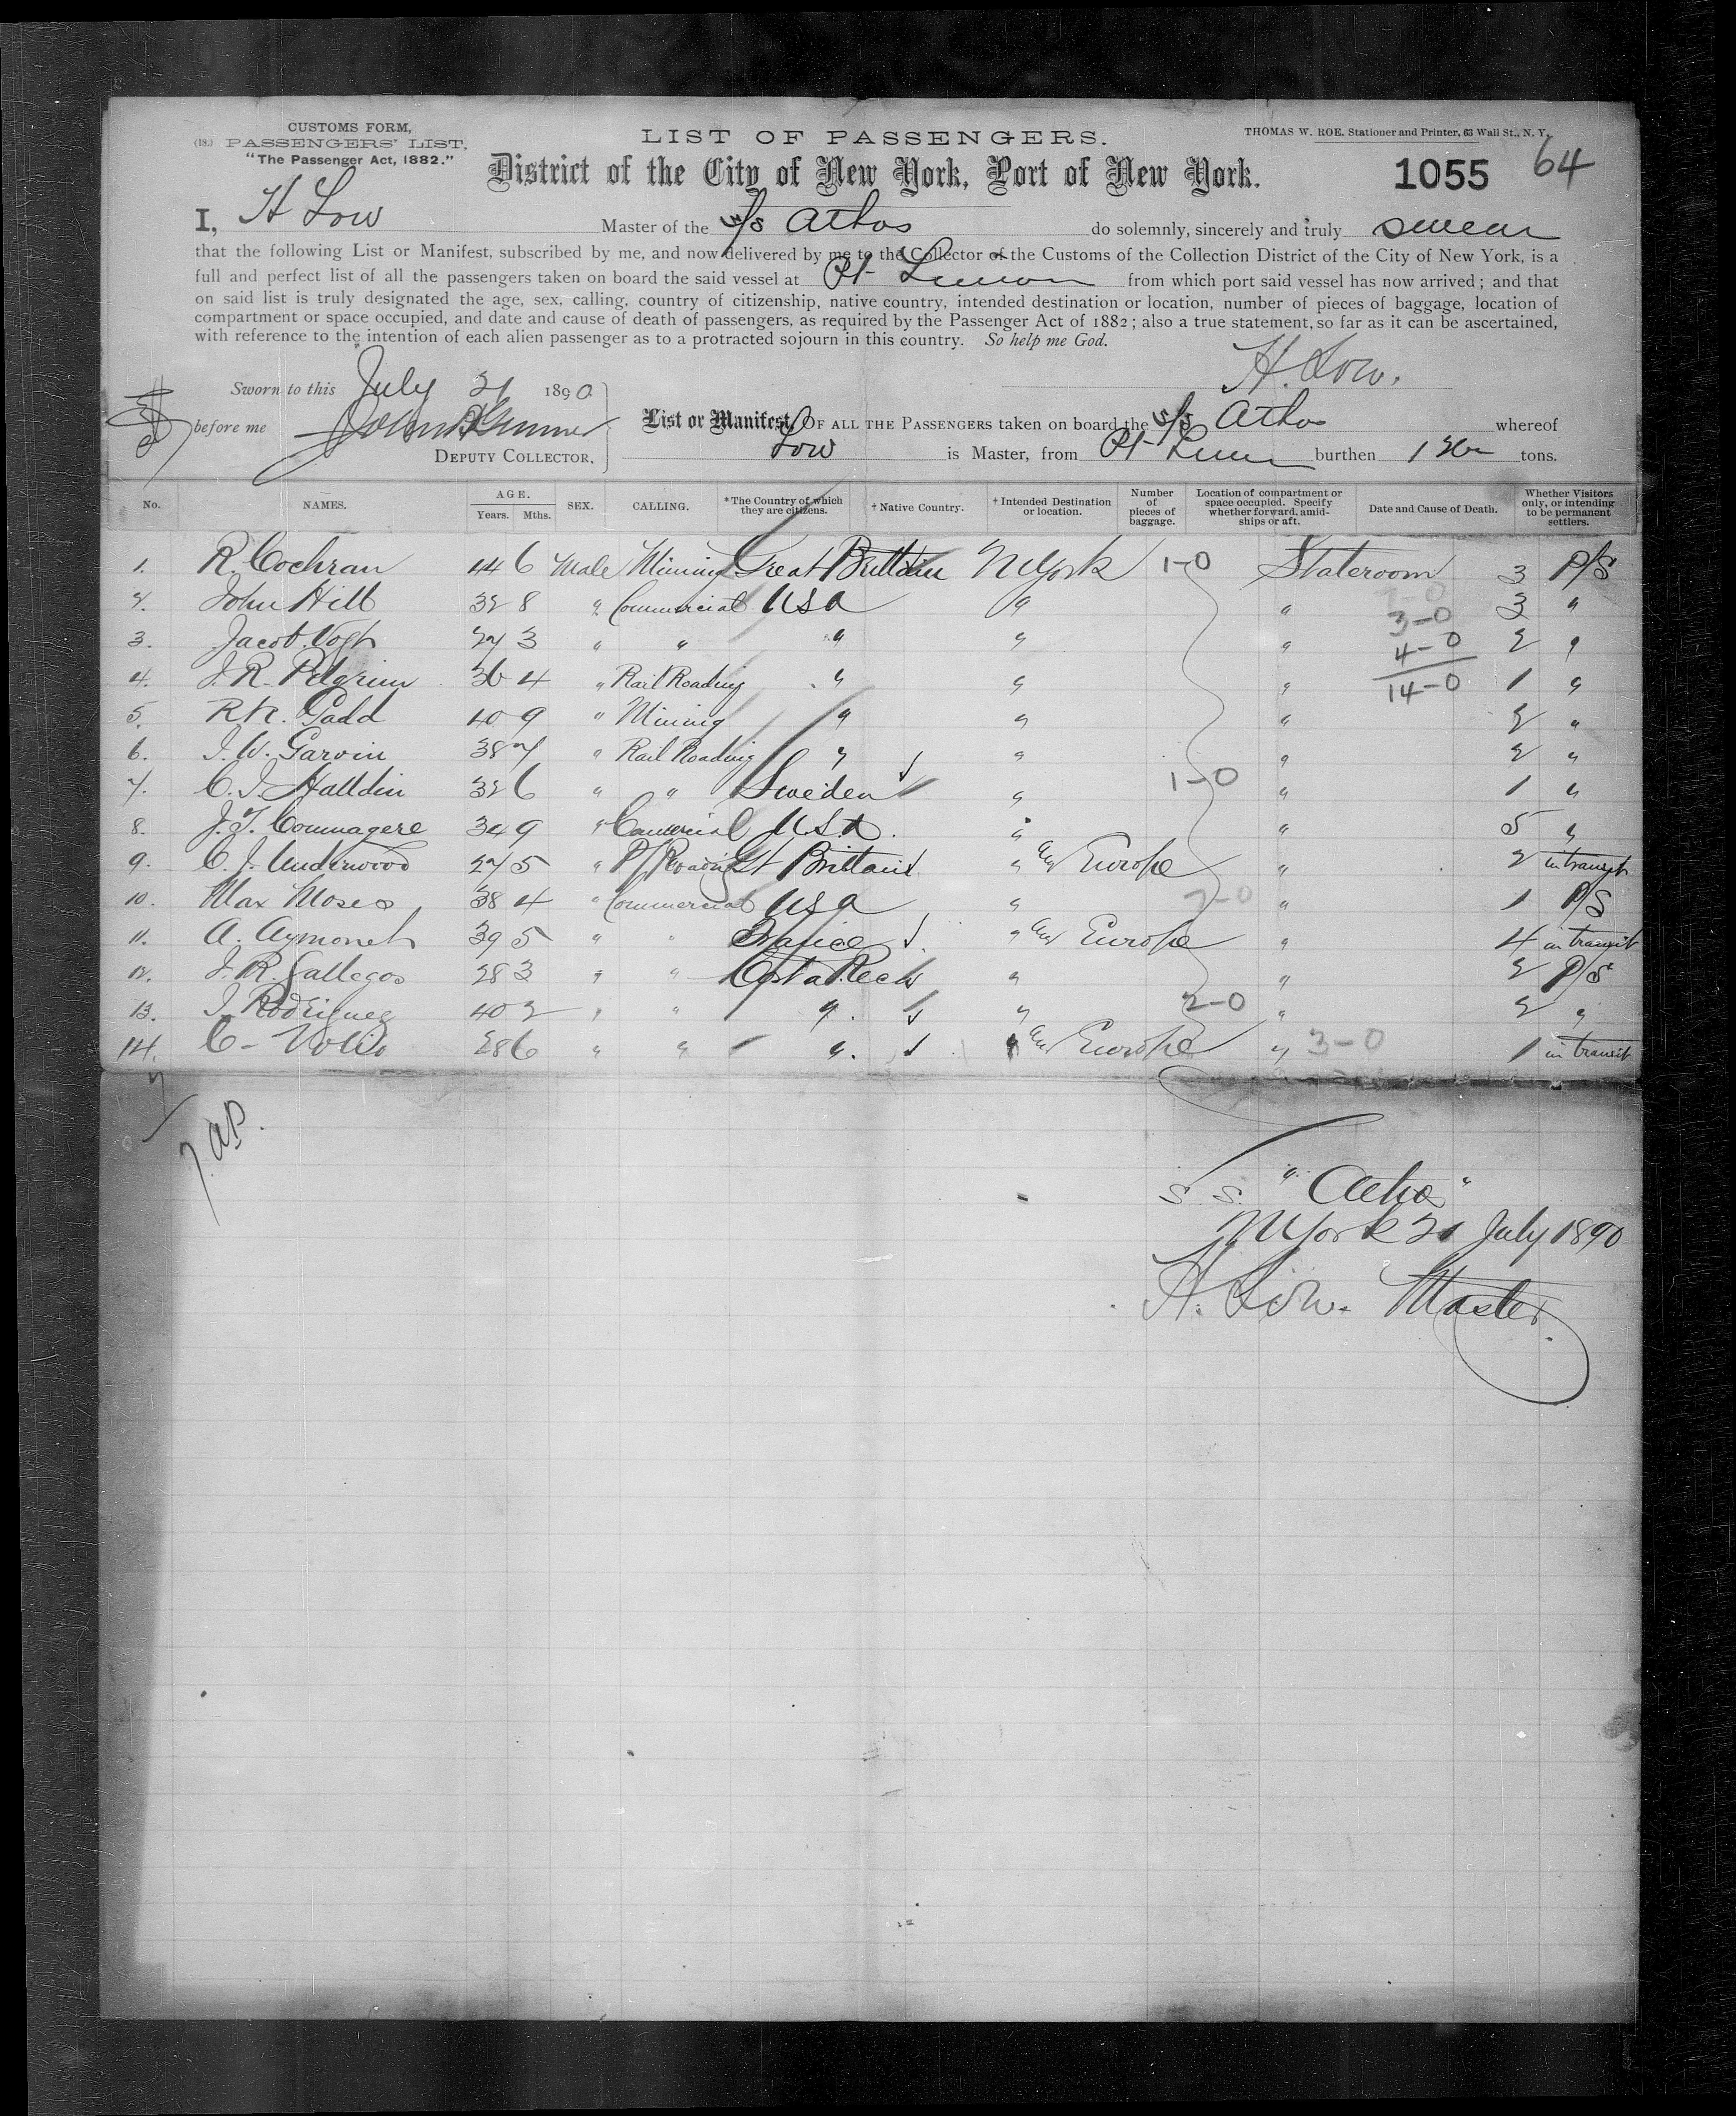 CUSTOMS FORM,
(18.) PASSENGERS' LIST,
"The Passenger Act, 1882."
LIST OF PASSENGERS.
THOMAS W. ROE, Stationer and Printer, 63 Wall St., N. Y.
District of the City of New York, Port of New York.
1055 64
I, H Low Master of the S/S Athos do solemnly, sincerely and truly swear
that the following List or Manifest, subscribed by me, and now delivered by me to the Collector of the Customs of the Collection District of the City of New York, is a
full and perfect list of all the passengers taken on board the said vessel at Pt Limon from which port said vessel has now arrived; and that
on said list is truly designated the age, sex, calling, country of citizenship, native country, intended destination or location, number of pieces of baggage, location of
compartment or space occupied, and date and cause of death of passengers, as required by the Passenger Act of 1882; also a true statement, so far as it can be ascertained,
with reference to the intention of each alien passenger as to a protracted sojourn in this country. So help me God.
H. Low.
Sworn to this July 21 1890
before me
DEPUTY COLLECTOR.
List or Manifest, OF ALL THE PASSENGERS taken on board the S/S Athos whereof
Low is Master, from Pt Limon burthen tons.
No. NAMES. AGE. Years. Mths. SEX. CALLING. *The Country of which they are citizens. † Native Country. † Intended Destination or location. Number of pieces of baggage. Location of compartment or space occupied. Specify whether forward, amidships or aft. Date and Cause of Death. Whether Visitors only, or intending to be permanent settlers.
1. R. Cochran 44 6 Male Mining Great Brittain N York 1-0 Stateroom 3 P/S
2. John Hill 32 8 " Commercial USA " " 3-0 3 "
3. Jacob Vogh 27 3 " " " " " 4-0 2 "
4. J. R. Pilgrim 36 4 " Rail Roading " " " 14-0 1 "
5. R N. Gadd 40 9 " Mining " " " 2 "
6. J. W. Garvin 38 7 " Rail Roading " " " 2 "
7. C. J. Halldin 32 6 " " Sweden " 1-0 " 1 "
8. J. T. Commagere 34 9 " Comercial U.S.A. " " 5 "
9. C. J. Underwood 27 5 " R/Roading Gt Brittain " and Europe " 2 in transit
10. Max Moses 38 4 " Commercial USA " 7-0 " 1 P/S
11. A. Aymoneh 39 5 " " France " and Europe " 4 in transit
12. J. R. Gallegos 28 3 " " Costa Reca " " 2 P/S
13. J. Rodriguez 40 2 " " " " 2-0 " 2 "
14. C - Volio 28 6 " " " " and Europe " 3-0 1 in transit
S. S. "Athos"
N York 21 July 1890
H. Low. Master.